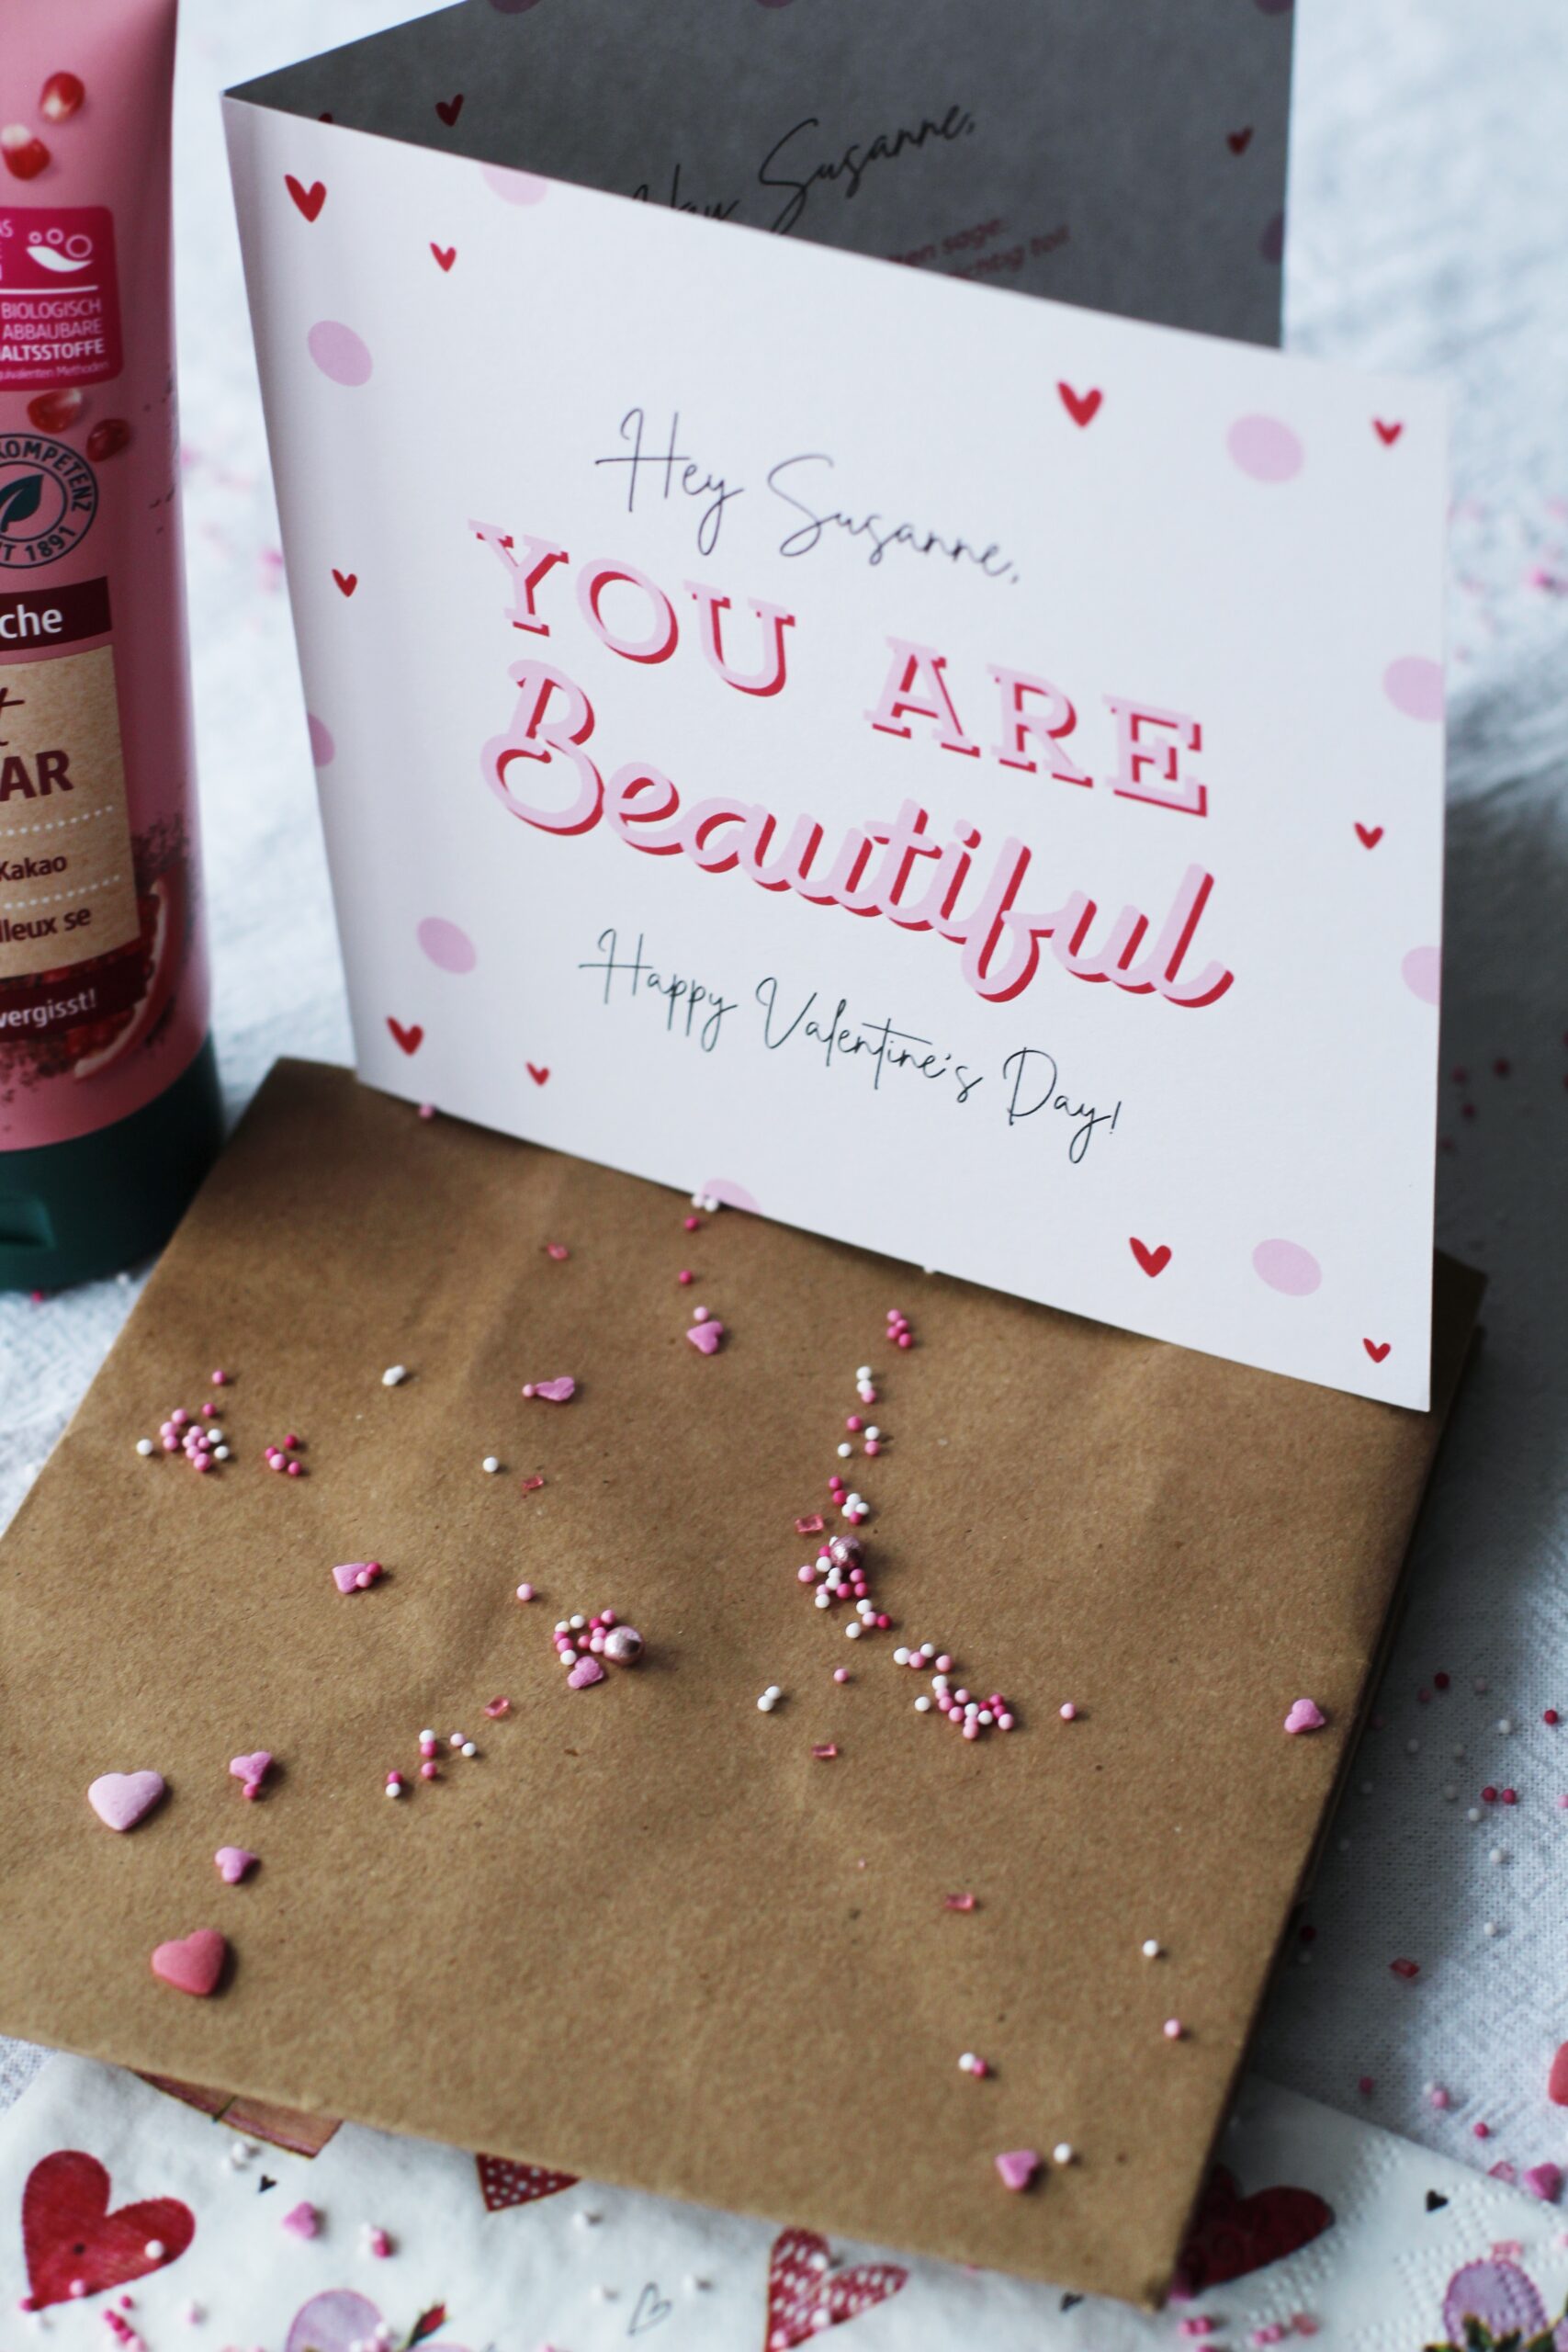 Hey Susanne,
sage:
Hey Susanne,
YOU ARE
Beautiful
Happy Valentine's Day!
BIOLOGISCH
ABBAUBARE
ALTSSTOFFE
quivalenten Methoden
KOMPETENZ
IT 1891
che
AR
Kakao
lleux se
vergisst!